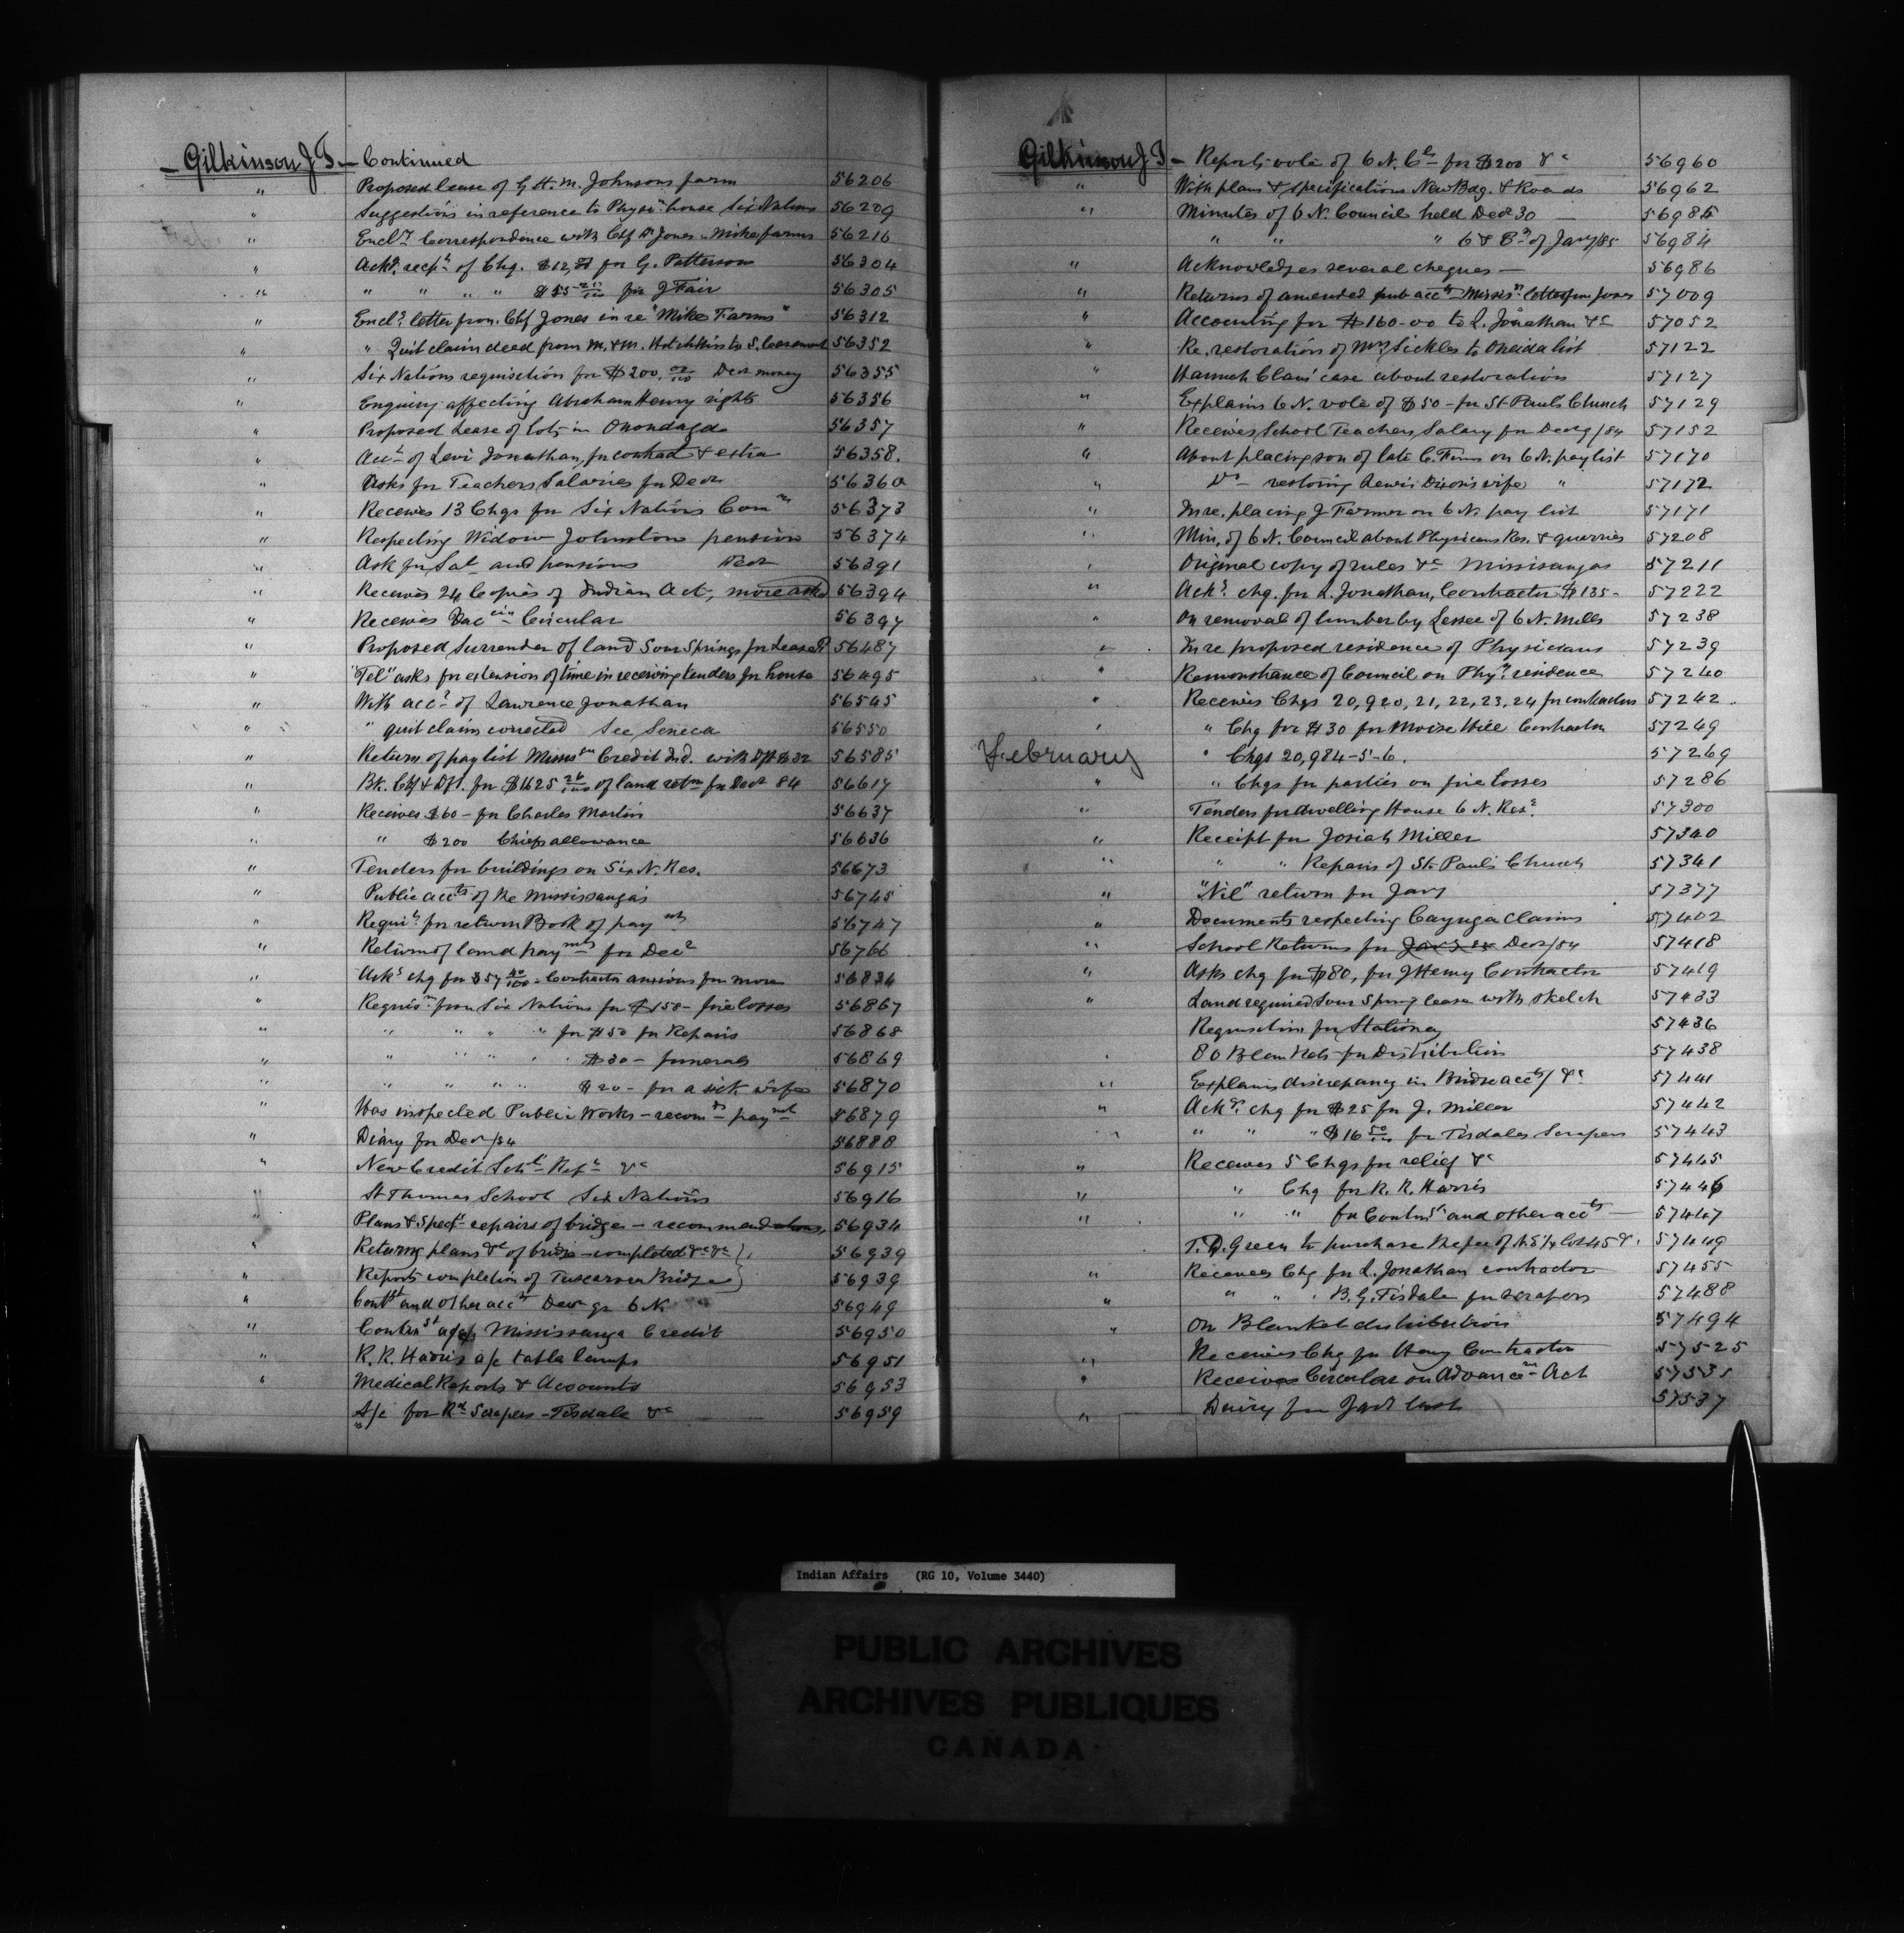 Gilkinson J T — Continued
" Proposed lease of G H. M. Johnsons farm 56206
" Suggestions in reference to Physns house Six Nations 56209
" Encl. Correspondence with Chf Jones - Mike farms 56216
" Ackd. recpt of Chq. $12, for G. Patterson 56304
" " " " " $55 for J Fair 56305
" Encls letter from Chf Jones in re "Mike Farms" 56312
" " Quit claim deed from M. & M. Hotchkiss to S. 56352
" Six Nations requisition for $200. 00/100 Decr money 56355
" Enquiry affecting Abraham Henry rights 56356
" Proposed Lease of lots in Onondaga 56357
" Acct of Levi Jonathan, for contract & extra 56358.
" Asks for Teachers Salaries for Decr 56360
" Receives 13 Chqs for Six Nations Com 56373
" Respecting Widow Johnston pension 56374
" Ask for Sal and pensions Decr 56391
" Receives 24 Copies of Indian Act, more asked 56394
" Receives Vaccin Circular 56397
" Proposed Surrender of land Sour Springs for Lease 56487
" "Tel" asks for extension of time in receiving tenders for house 56495
" With acct of Lawrence Jonathan 56545
" " quit claim corrected See Seneca 56550
" Return of pay list Missn Credit Ind. with Dft $32 56585
" Bk. Ctf & Dft. for $1625 26/100 of land retn for Decr 84 56617
" Receives $60 - for Charles Martin 56637
" " $200 Chiefs allowance 56636
" Tenders for buildings on Six N. Res. 56673
" Public accts of the Mississaugas 56745
" Requis for return Book of paymts 56747
" Return of land paymts for Decr 56766
" Acks chq for $57 40/100 - Contracts anxious for more 56834
" Requisn from Six Nations for $158 - fire losses 56867
" " " " " for $50 for Repairs 56868
" " " " " $30 - funerals 56869
" " " " " $20 - for a sick wife 56870
" Has inspected Public Works - recomds paymt 56879
" Diary for Decr/84 56888
" New Credit Schl Rept &c 56915
" St Thomas School Six Nations 56916
" Plans & Specfs repairs of bridges - recommendations, 56934
" Returng plans &c of bridge - completed &c &c 56939
" Reports completion of Tuscarora Bridge 56939
" Contst and other accts Decr qr 6 N. 56949
" Contnst a/cs Mississauga Credit 56950
" R. R. Harris a/c table lamps 56951
" Medical Reports & Accounts 56953
" A/c for Rd Scrapers - Tisdale &c 56959
Gilkinson J T — Reports vote of 6 N. Cl for $200 &c 56960
" With plans & specifications New Bdg. & Roads 56962
" Minutes of 6 N. Council held Decr 30 — 56985
" " " 6 & 8th of Jany/85 56984
" Acknowledges several cheques — 56986
" Returns of amended pub accts Missisn letter from Jones 57009
" Accounting for $160-00 to L. Jonathan &c 57052
" Re, restoration of Mary Sickles to Oneida list 57122
" Hannah Claus' case about restoration 57127
" Explains 6 N. vote of $50 - for St Pauls Church 57129
" Receives School Teachers Salary for Decr/84 57152
" About placing son of late C. on 6 N. pay list 57170
" Do restoring Lewis Dixon's wife " 57172
" In re, placing J Farmer on 6 N. pay list 57171
" Min. of 6 N. Council about Physicians Res. & querries 57208
" Original copy of rules &c Missisaugas 57211
" Acks. chq. for L. Jonathan, Contractor $135- 57222
" On removal of lumber by Lessee of 6 N. Mills 57238
" In re proposed residence of Physicians 57239
" Remonstrance of Council on Phyns residence 57240
" Receives Chqs 20,920, 21, 22, 23, 24 for contractors 57242
" " Chq for $30 for Moise Hill Contractor 57249
February " Chqs 20,984-5-6. 57269
" " Chqs for parties on fire losses 57286
" Tenders for dwelling House 6 N. Res. 57300
" Receipt for Josiah Miller 57340
" " " Repairs of St. Pauls Church 57341
" "Nil" return for Jany 57377
" Documents respecting Cayuga Claims 57402
" School Returns for Decr/84 57418
" Asks chq for $80, for J Henry Contractor 57419
" Land required Sour Spring lease with sketch 57433
Requisition for Stationery 57436
80 Blankets for Distribution 57438
" Explains discrepancy in Bridge accts/ &c 57441
" Ackgs. chq for $25 for J. Miller 57442
" " " " $16 50/100 for Tisdales Scrapers 57443
" Receives 5 Chqs for relief &c 57445
" " Chq for R. R. Harris 57446
" " " for Contnst and other accts — 57447
T. D. Green to purchase the fee of N. S ¼ Lot 45 &. 57449
" Receives Chq for L. Jonathan contractor 57455
" " " B. G. Tisdale for scrapers 57488
" On Blanket distribution 57494
" Receives Chq for Henry Contractor 57525
" Receives Circular on Advancem Act 57535
" Dairy for Jany last 57537
Indian Affairs (RG 10, Volume 3440)
PUBLIC ARCHIVES
ARCHIVES PUBLIQUES
CANADA